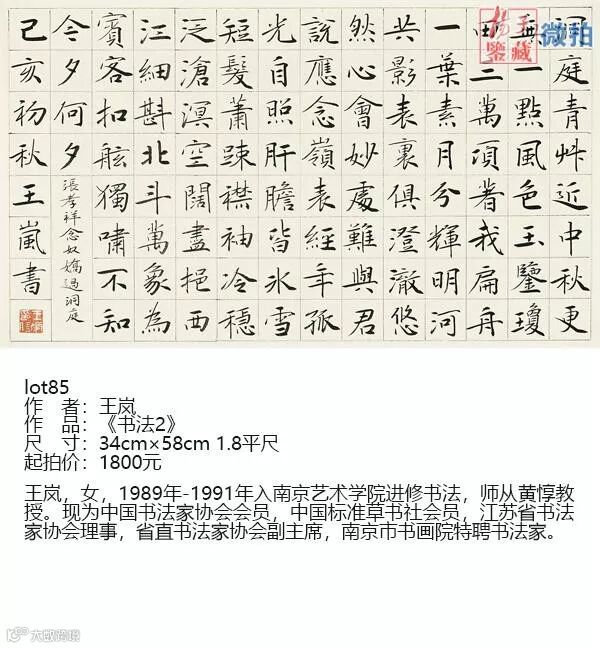 洞庭青艸近中秋更
無一點風色玉鑒瓊
田二萬頃著我扁舟
一葉素月分輝明河
共影表裏俱澄澈悠
然心會妙處難與君
說應念嶺表經年孤
光自照肝膽皆氷雪
短髮蕭疎襟袖冷穩
泛滄溟空闊盡挹西
江細斟北斗萬象為
賓客扣舷獨嘯不知
今夕何夕
張孝祥念奴嬌過洞庭
己亥初秋王嵐書
微拍
lot85
作 者：王岚
作 品：《书法2》
尺 寸：34cm×58cm 1.8平尺
起拍价：1800元
王岚，女，1989年-1991年入南京艺术学院进修书法，师从黄惇教
授。现为中国书法家协会会员，中国标准草书社会员，江苏省书法
家协会理事，省直书法家协会副主席，南京市书画院特聘书法家。